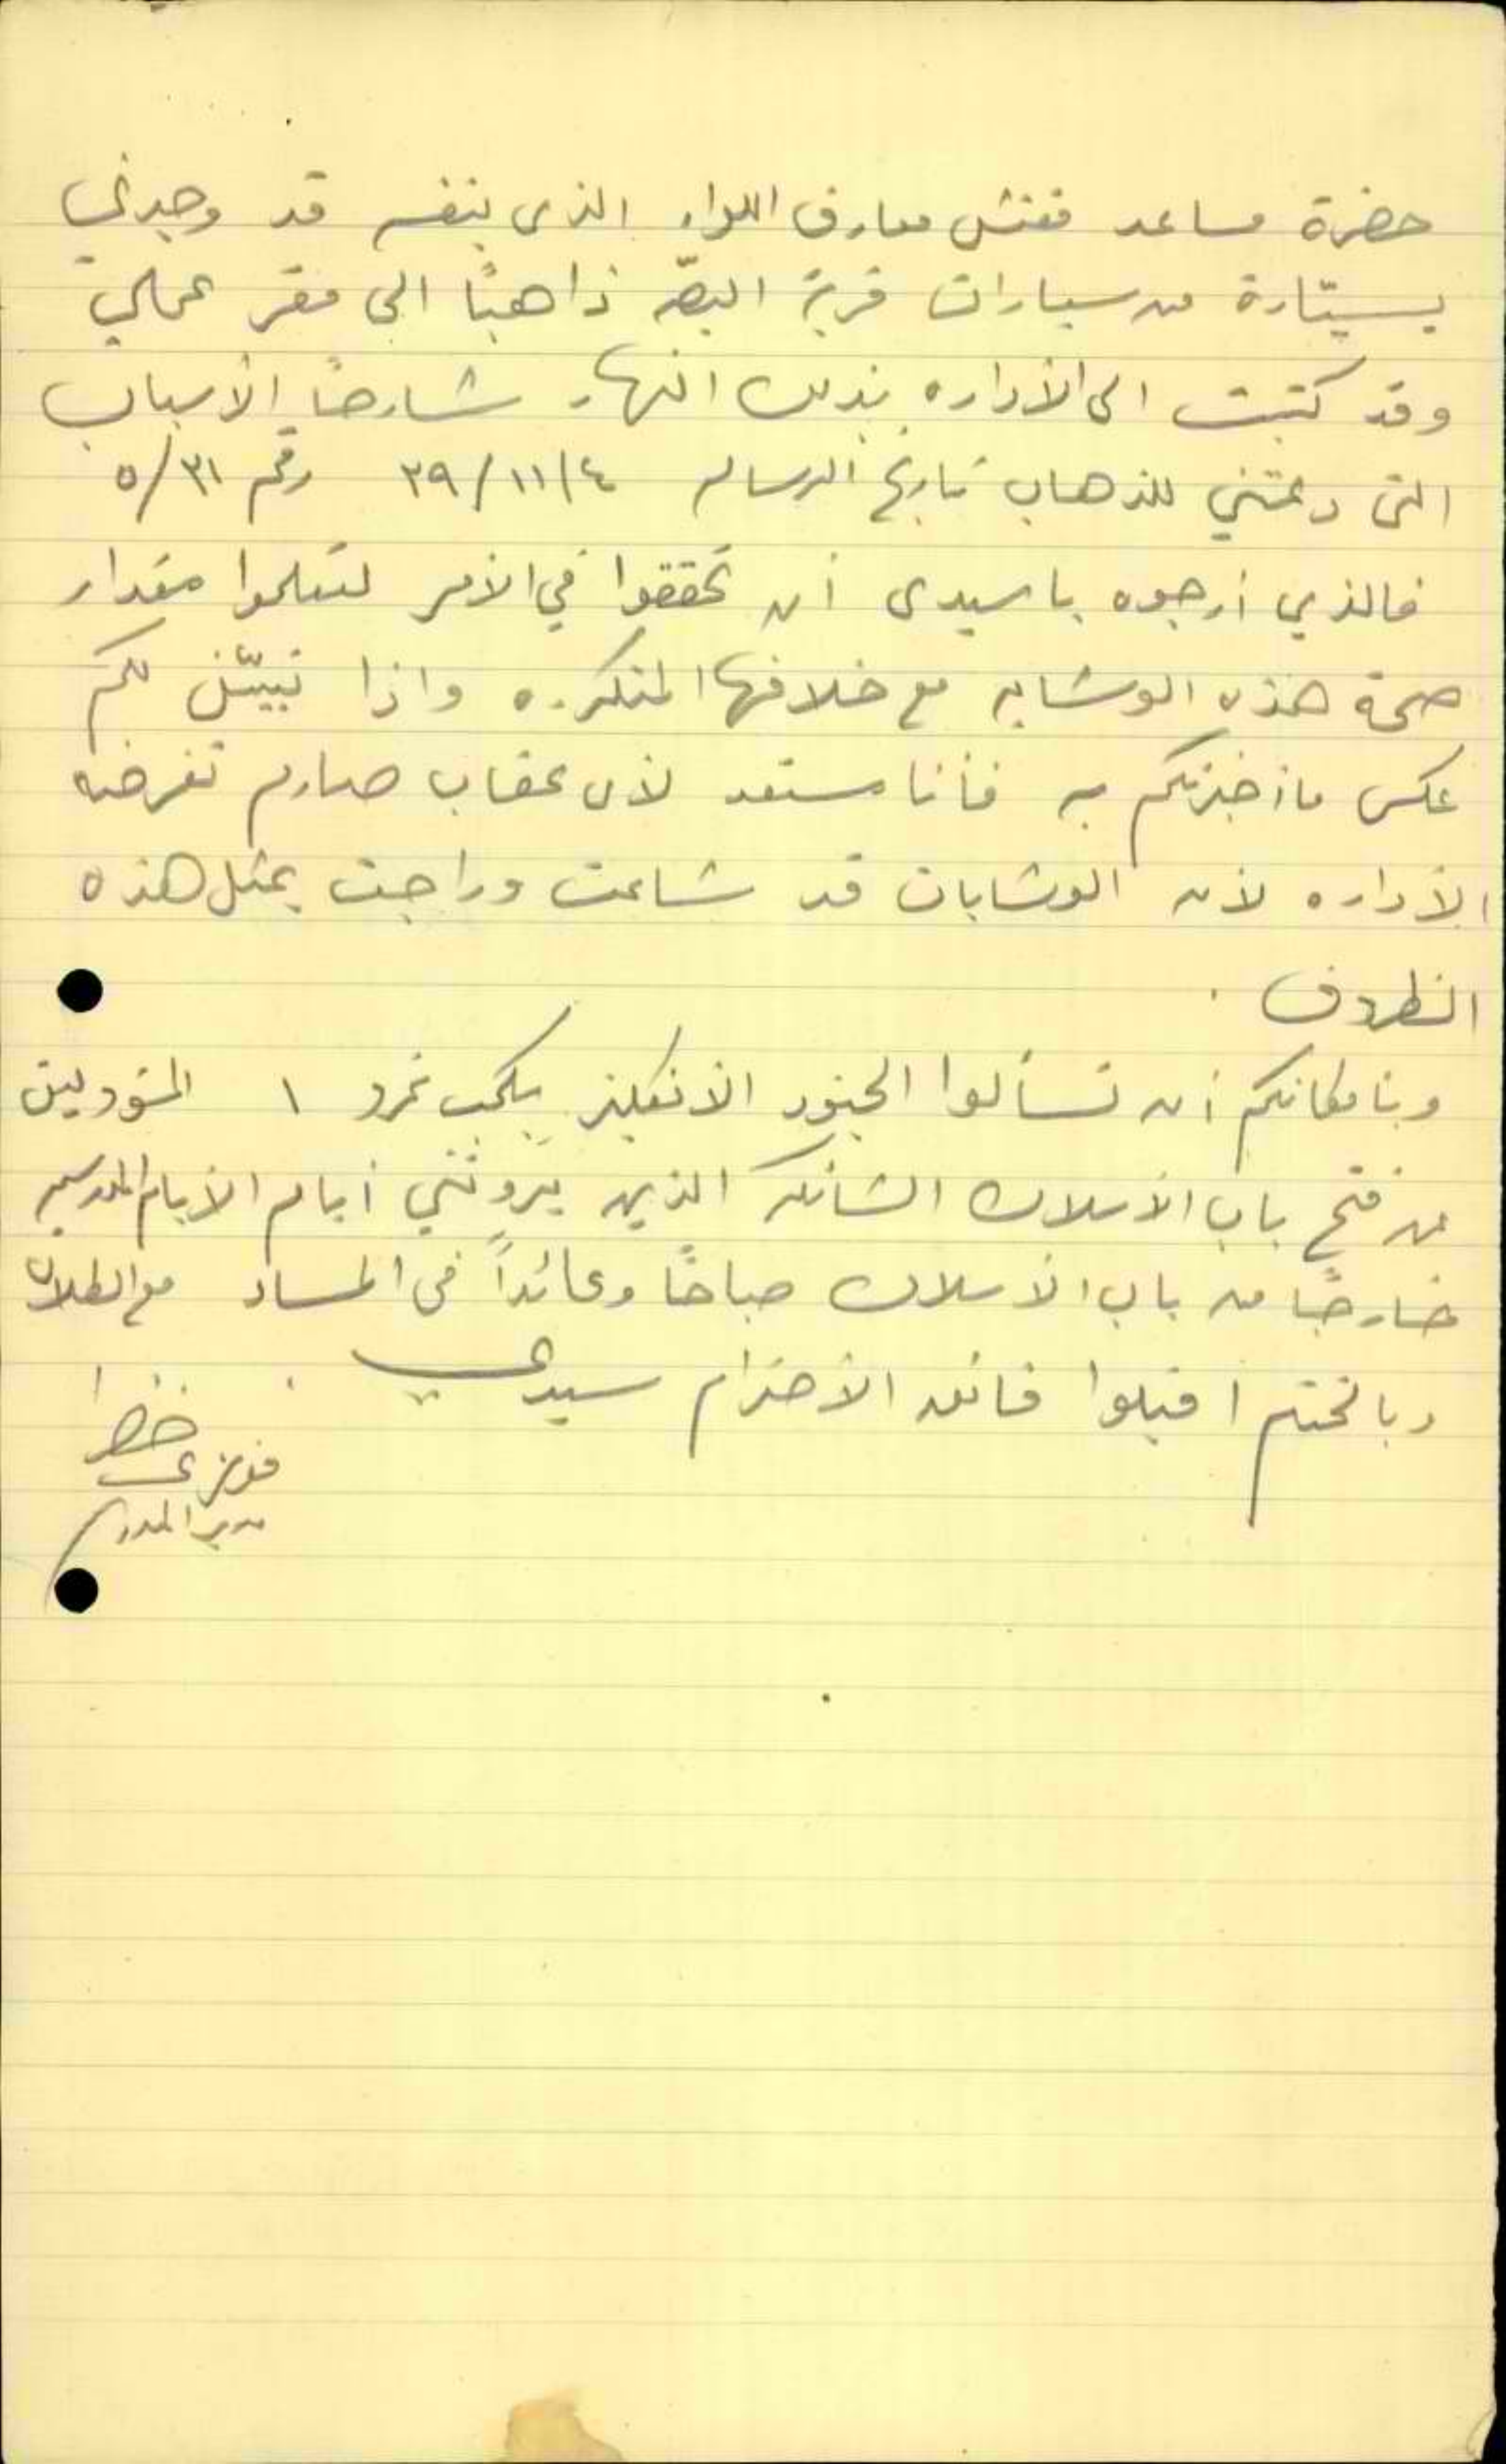 حضرة مساعد مفتش معارف اللواء الذى بنفسه قد وجدني
بسيّارة من سيارات قرية البصّه ذاهبًا الى مقر عملي
وقد كتبت الى الأداره بذلك النهار شارحًا الأسباب
التى دعتني للذهاب تاريخ الرساله ٤/١١/٣٩ رقم ٥/٣١
فالذي أرجوه يا سيدى أن تحققوا في الأمر لتعلموا مقدار
صحة هذه الوشايه مع خلافها المتكرره واذا تبيّن لكم
عكس ما أخبرتكم به فأنا مستعد لأى عقاب صارم تفرضه
الأداره لأن الوشايات قد شاعت وراجت بمثل هذه
الظروف .
وبأمكانكم أن تسألوا الجنود الأنكليز بكمب نمرو ١ المسؤولين
عن فتح باب الأسلاك الشائكه الذين يَرونَني أيام الأيام المدرسيه
خارجًا من باب الأسلاك صباحًا وعائداً في المساء مع الطلاب
وبالختم اقبلوا فائق الأحترام سيدي .
فوزى خضرا
مدير المدرسة